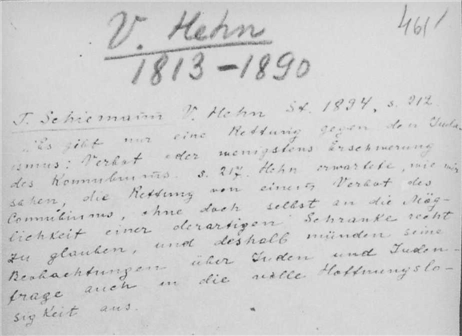 V. Hehn
461/
1813-1890
T. Schiemann V. Hehn St. 1894, s. 212
„Es gibt nur eine Rettung gegen den Juda-
ismus: Verbot oder wenigstens Erschwerung
des Konnubiums. s. 217. Hehn erwartete, wie wir
sahen, die Rettung von einem Verbot des
Connubiums, ohne doch selbst an die Mög-
lichkeit einer derartigen Schranke recht
zu glauben, und deshalb münden seine
Beobachtungen über Juden und Juden-
frage auch in die volle Hoffnungslo-
sigkeit aus.